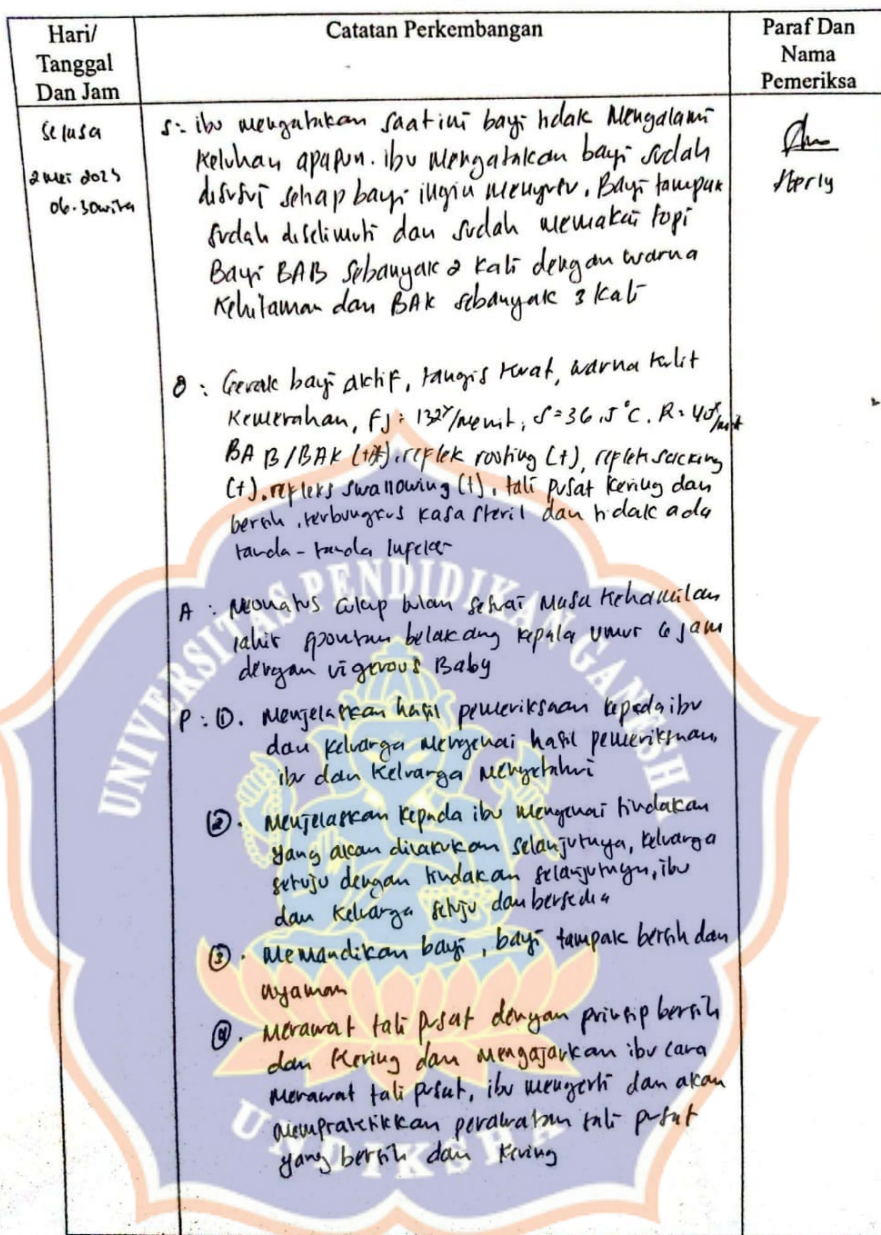 Hari/
Tanggal
Dan Jam
Catatan Perkembangan
Paraf Dan
Nama
Pemeriksa
Selasa
2 Mei 2023
06.30 wita
S: ibu mengatakan saat ini bayi tidak Mengalami
keluhan apapun. ibu Mengatakan bayi sudah
disusui setiap bayi ingin menyusu. Bayi tampak
sudah diselimuti dan sudah memakai topi
Bayi BAB sebanyak 2 Kali dengan warna
Kehitaman dan BAK sebanyak 3 kali
Herly
O: Gerak bayi aktif, tangis kuat, warna kulit
Kemerahan, FJ: 132x/menit, S=36,5°C. R:
BAB/BAK reflek rooting (+), reflek sucking
(+), refleks swallowing (+), tali pusat kering dan
bersih, terbungkus kasa steril dan tidak ada
tanda-tanda infeksi
A: Neonatus cukup bulan sesuai Masa kehamilan
lahir spontan belakang kepala umur 6 jam
dengan vigerous Baby
P: ①. Menjelaskan hasil pemeriksaan kepada ibu
dan keluarga mengenai hasil pemeriksaan,
ibu dan keluarga mengetahui
②. Menjelaskan kepada ibu mengenai tindakan
yang akan dilakukan selanjutnya, keluarga
setuju dengan tindakan selanjutnya, ibu
dan keluarga setuju dan bersedia
③. Memandikan bayi, bayi tampak bersih dan
nyaman
④. Merawat tali pusat dengan prinsip bersih
dan kering dan mengajarkan ibu cara
merawat tali pusat, ibu mengerti dan akan
mempraktikkan perawatan tali pusat
yang bersih dan kering
UNIVERSITAS PENDIDIKAN GANESHA
UNDIKSHA